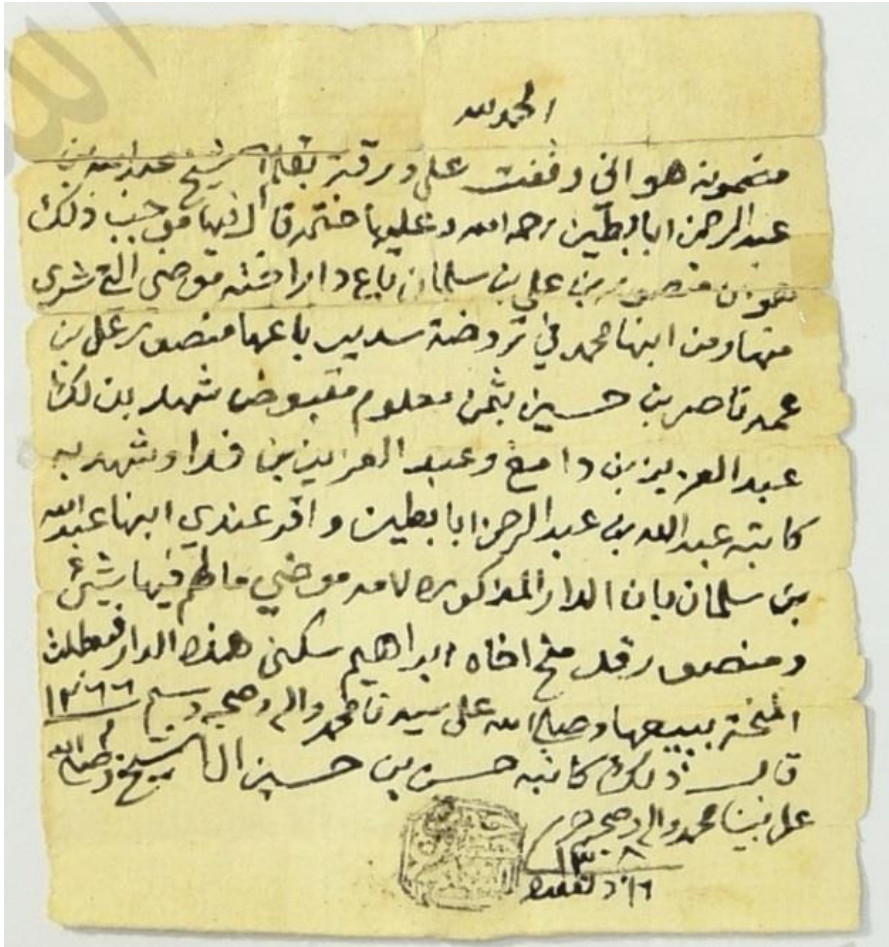 الحمد لله
مضمونه هو اني وقفت على ورقة بقلم الشيخ عبدالله بن
عبدالرحمن ابابطين رحمه الله وعليها ختمه قال فيها موجب ذلك
هو ان منصور بن علي بن سلمان باع دار اخته موضي التي شرى
منها ومن ابنها محمد في روضة سدير باعها منصور على بن
عمه ناصر بن حسين بثمن معلوم مقبوض شهد بذلك
عبدالعزيز بن دامغ وعبد العزيز بن فدا وشهد به
كاتبه عبدالله بن عبدالرحمن ابابطين واقر عندي ابنها عبدالله
بن سلمان بان الدار المذكوره لامه موضي مالهم فيها شيئ
ومنصور قد منح اخاه ابراهيم سكنى هذه الدار فبطلت
المنحة ببيعها وصلى الله على سيدنا محمد واله وصحبه وسلم ١٢٦٦
قال ذلك كاتبه حسن بن حسين ال الشيخ وصلى الله
على نبينا محمد واله وصحبه حرر
١٣٠٨
١٦ ذ القعده